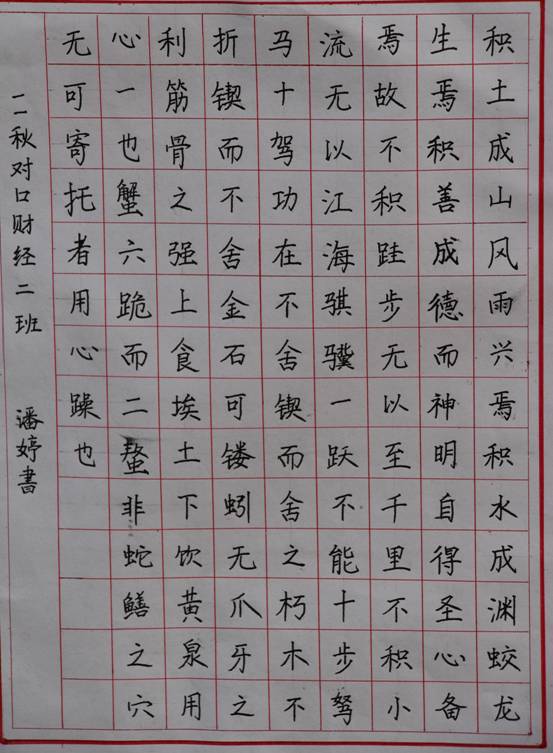 积土成山风雨兴焉积水成渊蛟龙
生焉积善成德而神明自得圣心备
焉故不积跬步无以至千里不积小
流无以江海骐骥一跃不能十步驽
马十驾功在不舍锲而舍之朽木不
折锲而不舍金石可镂蚓无爪牙之
利筋骨之强上食埃土下饮黄泉用
心一也蟹六跪而二螯非蛇鳝之穴
无可寄托者用心躁也
一一秋对口财经二班 潘婷書